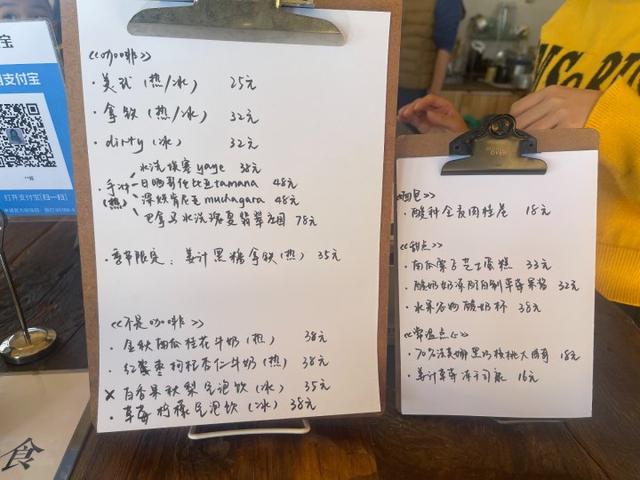 宝
支付宝
打开支付宝[扫一扫]
<<咖啡>>
·美式(热/冰) 25元
·拿铁(热/冰) 32元
·dirty(冰) 32元
·手冲(热)
水洗埃塞 yaye 38元
日晒哥伦比亚 tamana 48元
深烘肯尼亚 muchagara 48元
巴拿马水洗瑰夏翡翠庄园 78元
·季节限定:姜汁黑糖拿铁(热) 35元
<<不是咖啡>>
·金秋南瓜桂花牛奶(热) 38元
·红蜜枣枸杞杏仁牛奶(热) 38元
×百香果秋梨气泡饮(冰) 35元
·草莓柠檬气泡饮(冰) 38元
食
面包>>
·酸种全麦肉桂卷 18元
<<甜点>>
·南瓜栗子芝士蛋糕 33元
·酸奶奶冻附自制草莓果酱 32元
·水果谷物酸奶杯 38元
<<常温点心>>
·70%法芙娜黑巧核桃 18元
·姜汁草莓冻干司康 16元